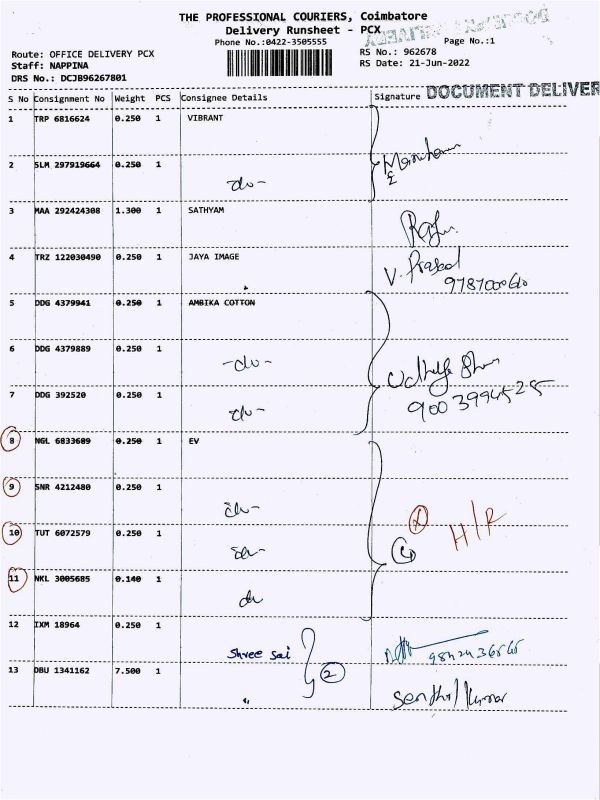 THE PROFESSIONAL COURIERS, Coimbatore
Delivery Runsheet - PCX
Phone No.:0422-3505555
Page No.:1
Route: OFFICE DELIVERY PCX
RS No.: 962678
Staff: NAPPINA
RS Date: 21-Jun-2022
DRS No.: DCJB96267801
DOCUMENT DELIVER
S No Consignment No Weight PCS Consignee Details Signature
1 TRP 6816624 0.250 1 VIBRANT
2 SLM 297919664 0.250 1
-do-
3 MAA 292424308 1.300 1 SATHYAM
4 TRZ 122030490 0.250 1 JAYA IMAGE
V. Prasad
5 DDG 4379941 0.250 1 AMBIKA COTTON
6 DDG 4379889 0.250 1
-do-
7 DDG 392520 0.250 1
-do-
9003994525
8 NGL 6833609 0.250 1 EV
9 SNR 4212480 0.250 1
do-
H/R
10 TUT 6072579 0.250 1
do-
11 NKL 3005685 0.140 1
do
12 IXM 18964 0.250 1
Shree Sai
2
13 DBU 1341162 7.500 1
"
Senthil Kumar